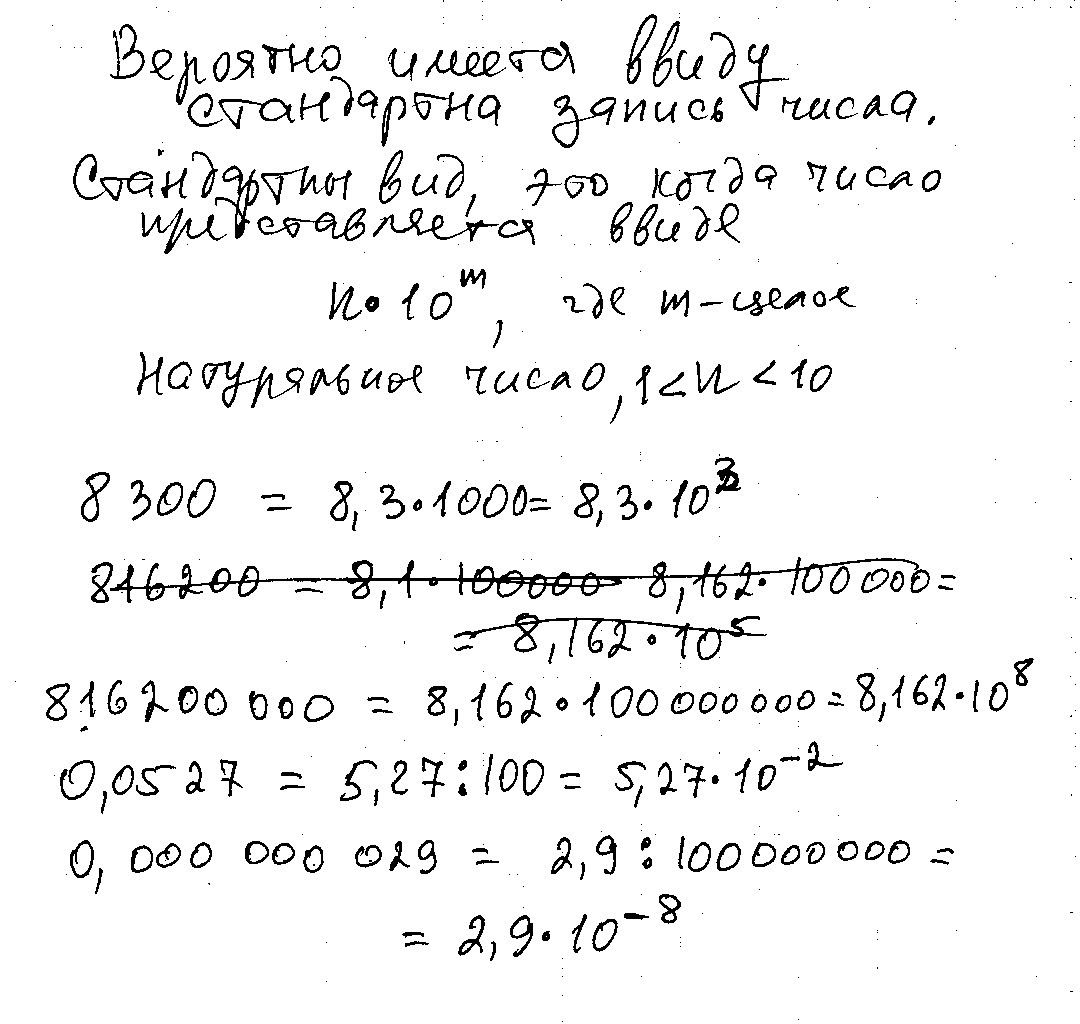 Вероятно имеета ввиду
стандартна запись числа.
Стандартны вид, это когда число
представляется ввиде
n•10^m, где m-целое
Натуральное число, 1<n<10
8300 = 8,3•1000= 8,3•10^3
816200 = 8,1•100000 8,162•100000=
= 8,162•10^5
816200000 = 8,162•100000000=8,162•10^8
0,0527 = 5,27:100= 5,27•10^-2
0,000 000 029 = 2,9:100000000=
= 2,9•10^-8